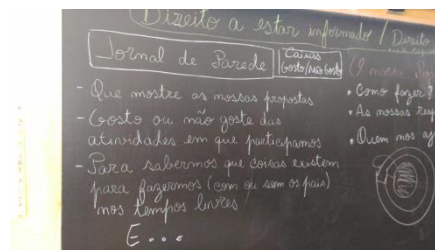 Direito a estar informado / Direito
Jornal de Parede
Caixas
Gosto/Não Gosto
- Que mostre as nossas propostas
- Gosto ou não gosto das
atividades em que participamos
- Para sabermos que coisas existem
para fazermos (com ou sem os pais)
nos tempos livres
E...
O nosso
• Como fazer?
• As nossas
• Quem nos